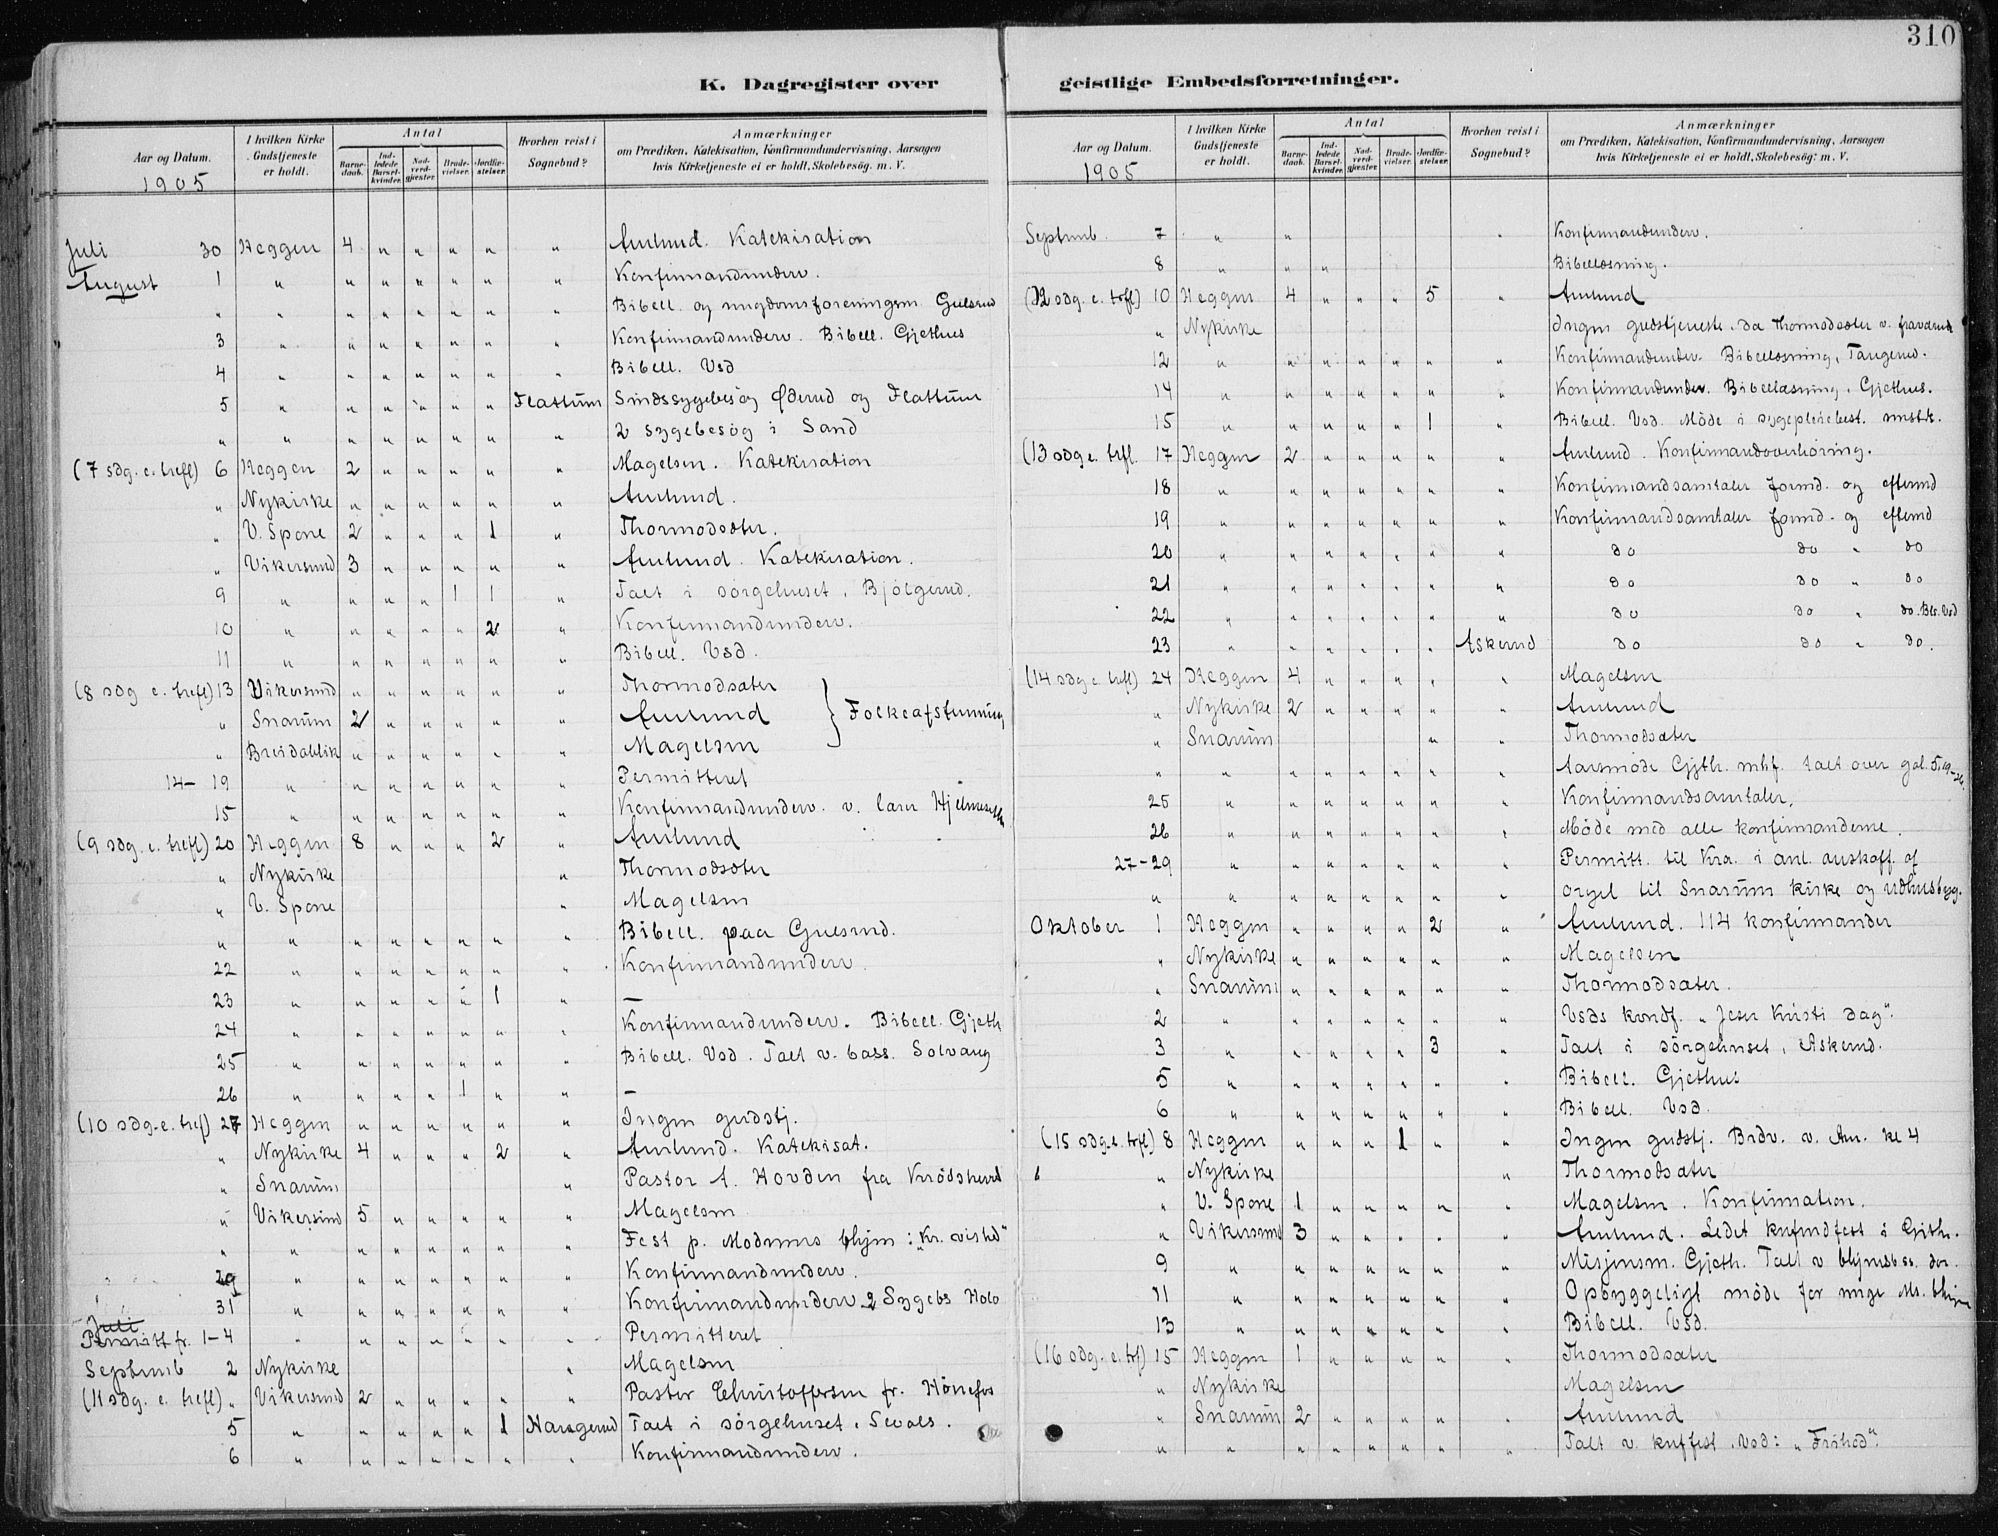 310
K. Dagregister over geistlige Embedsforretninger.
Aar og Datum. I hvilken Kirke Gudstjeneste er holdt. Antal Barnedaab. Indledede Barselkvinder. Nadverdgjæster. Brudevielser. Jordfæstelser. Hvorhen reist i Sognebud? Anmærkninger om Prædiken, Katekisation, Konfirmandundervisning, Aarsagen hvis Kirketjeneste ei er holdt, Skolebesøg. m. V.
1905
Juli 30 Heggen 4 " " " " " Aurlund. Katekisation
August 1 " " " " " " " Konfirmandunderv.
" " " " " " " " Bibell. og ungdomsforeningsm. Gulsrud
3 " " " " " " " Konfirmandunderv. Bibell. Gjethus
4 " " " " " " " Bibell. Vsd
5 " " " " " " Flattum Sindssygebesøg Øderud og Flattum
" " " " " " " " 2 sygebesøg i Sand
(7 sdg. e. trefl) 6 Heggen 2 " " " " " Magelsen. Katekisation
" Nykirke " " " " " " Aurlund.
" V. Spone 2 " " " 1 " Thormodsæter.
" Vikersund 3 " " " " " Aurlund. Katekisation.
9 " " " " 1 1 " Talt i sørgehuset, Bjølgerud.
10 " " " " " 2 " Konfirmandunderv.
11 " " " " " " " Bibell. Vsd.
(8 sdg e. trefl) 13 Vikersund " " " " " " Thormodsæter
" Snarum 2 " " " " " Aurlund } Folkeafstemning
" Breidablik " " " " " " Magelsen
14-19 " " " " " " " Permitteret
15 " " " " " " " Konfirmandunderv. v. lærer
(9 sdg. e. trefl) 20 Heggen 8 " " " 2 " Aurlund
" Nykirke " Thormodsæter
" V. Spone " Magelsen
" " " " " " " " Bibell. paa Gulsrud.
22 " " " " " " " Konfirmandunderv
23 " " " " " 1 " —
24 " " " " " " " Konfirmandunderv. Bibell. Gjeth
25 " " " " " " " Bibell. Vsd. Talt v. bass. Solvang
26 " " " " 1 " " —
(10 sdg. e. tref) 27 Heggen " " " " " " Ingen gudstj.
" Nykirke 4 " " " 2 " Aurlund. Katekisat.
" Snarum " Pastor A. Hovden fra Krødsherred
" Vikersund 5 " " " " " Magelsen
" " " " " " " " Fest p. Modums blhjem: "Kr. visted"
29 " " " " " " " Konfirmandunderv.
31 " " " " " " " Konfirmandunderv. 2 Sygebs Holo
Juli
Permitt fr. 1-4 " " " " " " " Permitteret
Septemb 2 Nykirke " Magelsen
(11 sdg. e. trefl) " Vikersund 2 " " " " " Pastor Christoffersen fr. Hønefos
5 " " " " " 1 Haugerud Talt i sørgehuset, Sevals.
6 " " " " " " " Konfirmandunderv.
Aar og Datum. I hvilken Kirke Gudstjeneste er holdt. Antal Barnedaab. Indledede Barselkvinder. Nadverdgjæster. Brudevielser. Jordfæstelser. Hvorhen reist i Sognebud? Anmærkninger om Prædiken, Katekisation, Konfirmandundervisning, Aarsagen hvis Kirketjeneste ei er holdt, Skolebesøg: m. V.
1905
Septemb. 7 " " " Konfirmandunderv.
8 " " " Bibellæsning.
(12 sdg. e. trfl) 10 Heggen 4 " " " 5 " Aurlund
" Nykirke Ingen gudstjeneste, da Thormodsæter v. fraværend
12 " " " " " " " Konfirmandunder. Bibellæsning, Tangerud.
14 " " " " " " " Konfirmandunder. Bibellæsning, Gjethus.
15 " " " " " 1 " Bibell. Vsd. Møde i sygepleiebest.
(13 sdg e. trfl. 17 Heggen 2 " " " " " Aurlund. Konfirmandoverhøring.
18 " " " " " " " Konfirmandsamtaler formd. og eftermd
19 " " " " " " " Konfirmandsamtaler formd. og eftermd
20 " " " " " " " do do " do
21 " " " " " " " do do " do
22 " " " " " " " do do " do. Vsd
23 " " " " " " Askerud do do " do.
(14 sdg. e. trefl) 24 Heggen 4 " " " " " Magelsen
" Nykirke 2 " " " " " Aurlund
" Snarum " " Thormodsæter
" " " " " " " " Aarsmøde Gjeth. mhf. talt over gal. 5, 19-24.
25 " " " " " " " Konfirmandsamtaler.
26 " " " " " " " Møde med alle konfirmanderne.
27-29 " " " " " " " Permitt. til Kra. i anl. anskaff. af
" " " " " " " " orgel til Snarum kirke og udhusbygg.
Oktober 1 Heggen " " " " 2 " Aurlund. 114 konfirmander
" Nykirke " " " " " " Magelsen
" Snarum " " " " " " Thormodsæter.
2 " " " " " " " Vsds kvindf. "Jesu Kristi dag".
3 " " " " " 3 " Talt i sørgehuset, Askerud.
5 " " " " " " " Bibell. Gjethus
6 " " " " " " " Bibell. Vsd.
(15 sdg. e. trfl) 8 Heggen " " " 1 " " Ingen gudstj. Brdv. v. Au. kl 4
" Nykirke " Thormodsæter
" V. Spone 1 " " " " " Magelsen. Konfirmation.
" Vikersund 3 " " " " " Aurlund. Ledet i Gjeth.
9 " " " " " " " Misjonsm. Gjeth. Talt v
11 " " " " " " " Opbyggeligt møde for unge Ms. blhjem
13 " " " " " " " Bibell. Vsd.
(16 sdg. e. trf) 15 Heggen 1 " " " " " Thormodsæter
" Nykirke Magelsen
" Snarum 2 " " " " " Aurlund
" " " " " " " " Talt v. Vsd: "Frihed".